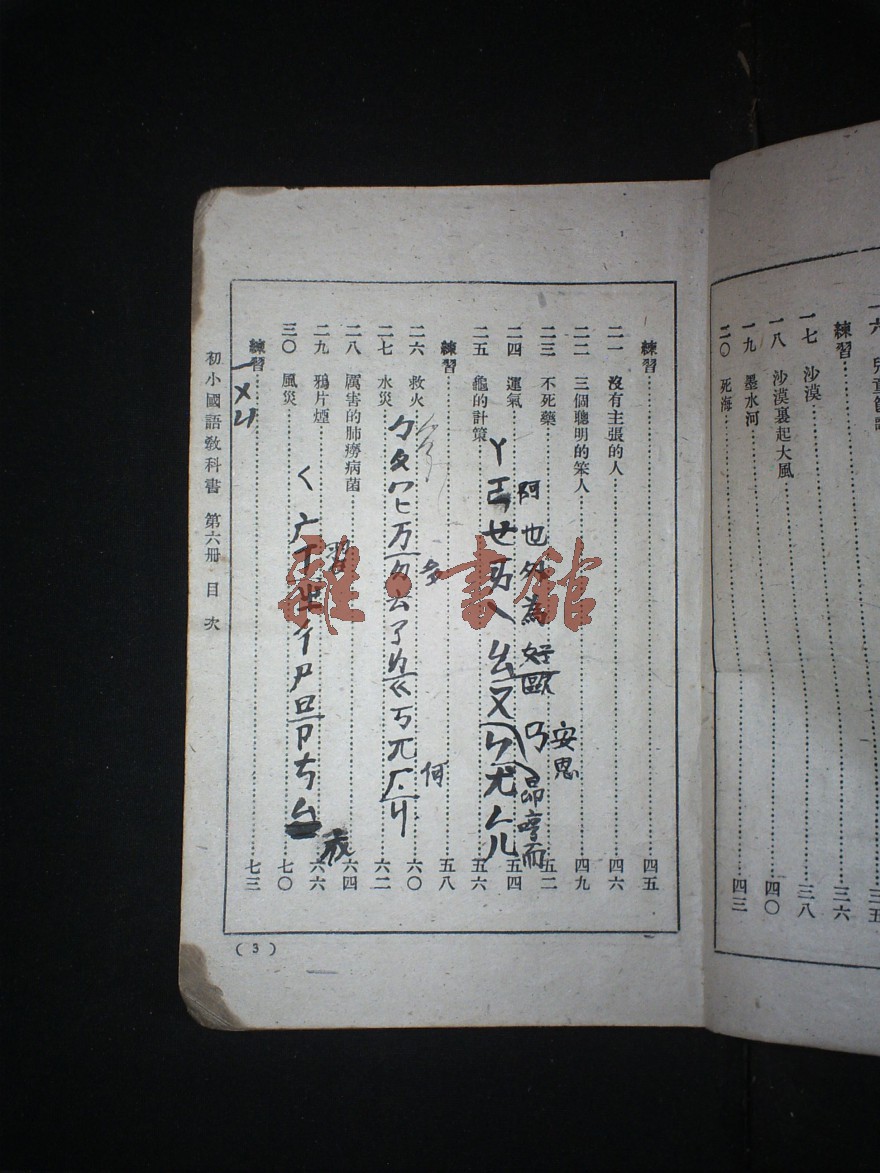 一七 沙漠
一八 沙漠裏起大風
一九 墨水河
二〇 死海
練習
三五
三六
三八
四〇
四三
練習 四五
二一 沒有主張的人 四六
二二 三個聰明的笨人 四九
二三 不死藥 五二
二四 運氣 五四
二五 龜的計策 五六
練習 五八
二六 救火 六〇
二七 水災 六二
二八 厲害的肺癆病菌 六四
二九 鴉片煙 六六
三〇 風災 七〇
練習 七三
初小國語教科書 第六冊 目次
(3)
安恩
阿也外為好歐ㄢ昂哼而
ㄚㄛㄝㄞㄟㄠㄡㄣㄤㄥㄦ
何
ㄅㄆㄇㄈㄪㄉㄊㄋㄌㄍㄎㄫㄏㄐ
習
ㄑㄬㄒㄓㄔㄕㄖㄗㄘㄙ
一ㄨㄩ
雜·書館